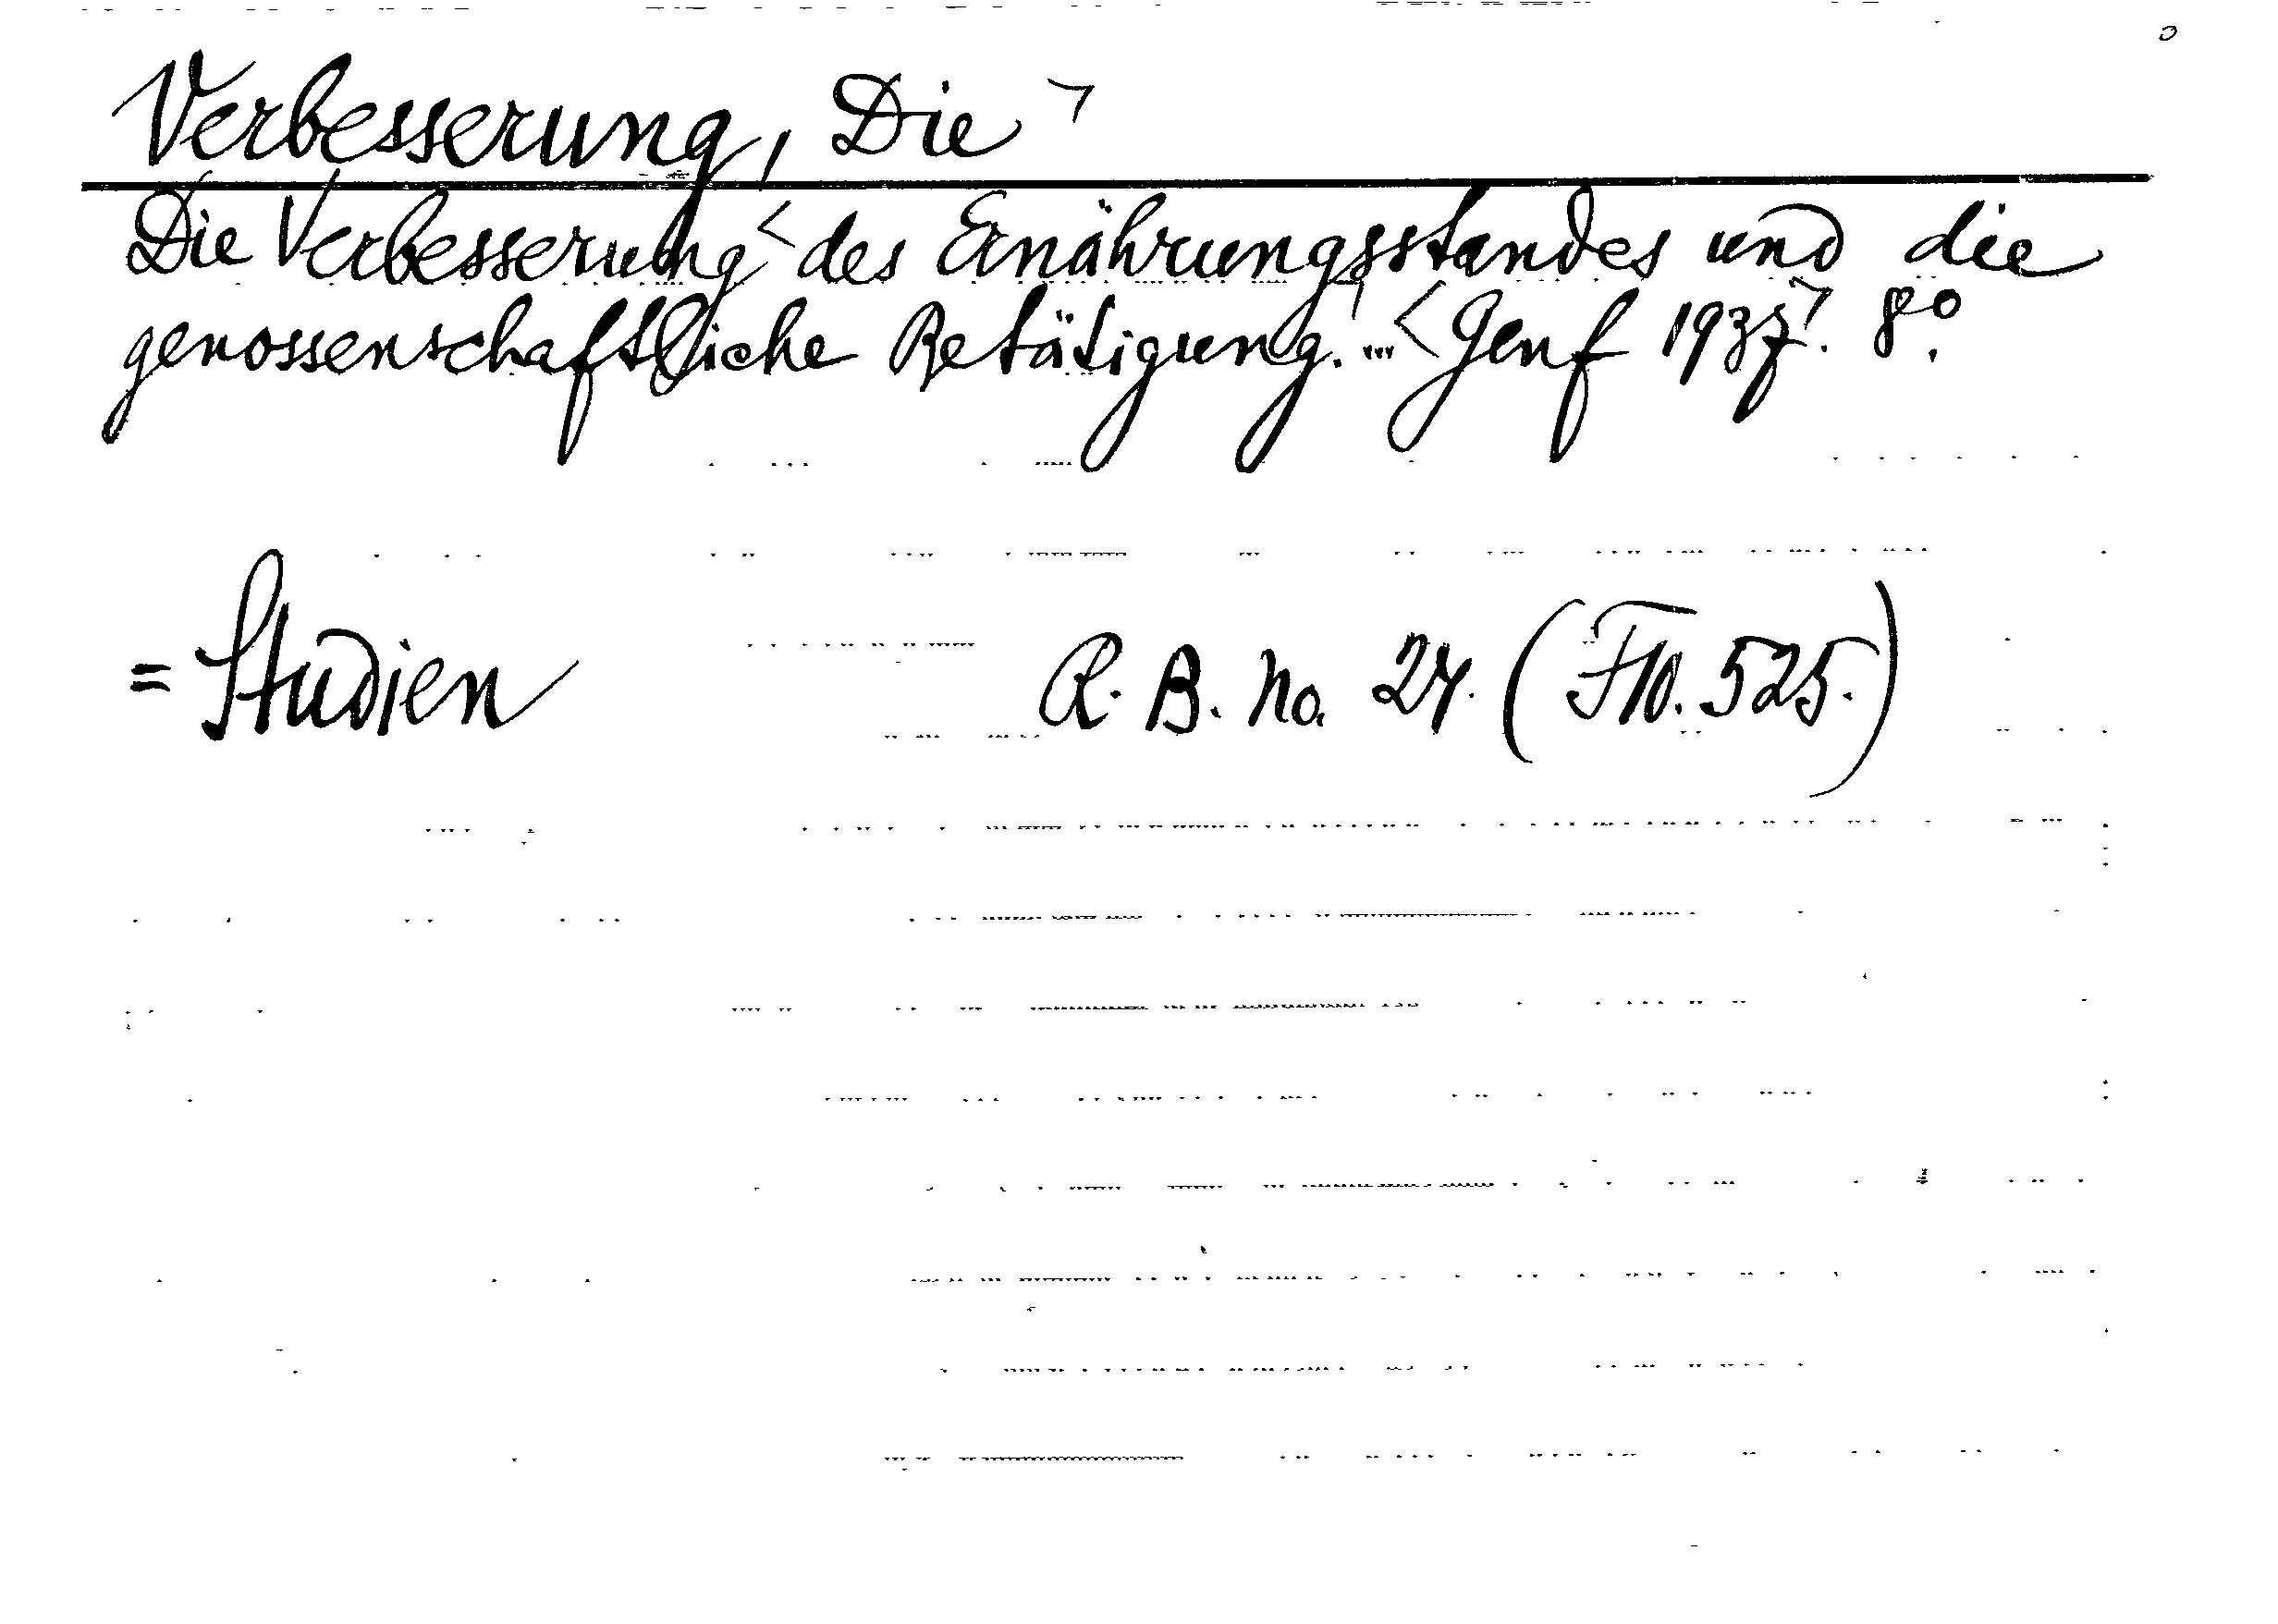 Verbesserung, Die ¬
Die Verbesserung < des Ernährungsstandes und die
genossenschaftliche Betätigung.¬ ... < Genf 1937¬. 8°.
= Studien R. B. No. 24. (Flb. 525.)